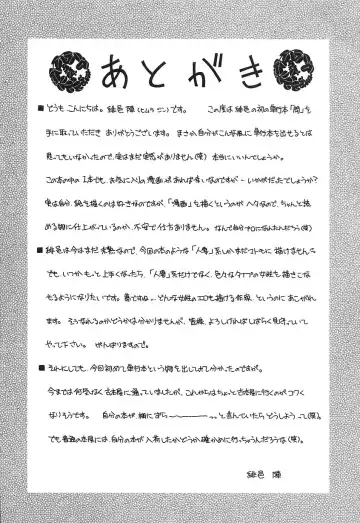 あとがき
■どうも、こんにちは。緋邑 陣(ヒムラ ジン)です。 この度は緋邑の初の単行本「闇」を
手に取っていただき ありがとうございます。まさか、自分がこんな風に単行本を出せるとは
思ってもいなかったので、実はまだ実感がありません(笑) 本当にいいんでしょうか。
この本の中の1本でも、お気に入りの漫画があれば幸いなのですが… いかがだったでしょうか?
実は自分、絵を描くのは好きなのですが、「漫画」を描くというのがヘタなので、ちゃんと読
める物に仕上がっているのか、不安で仕方ありません。なんで自分プロになれたんだろう(笑)
■緋邑は今はまだ未熟なので、今回の本のような「人妻」系しかまだマトモに描けませんが、
でも、いつかもっと上手くなったら、「人妻」系だけでなく、色々なタイプの女性を描きこな
せるようになりたいです。夢ですね。どんな女性のエロも描ける作家、というのにあこがれ
ます。そうなれるのかどうかは分かりませんが、皆様、よろしければしばらく見守っていて
やって下さい。がんばりますので。
■それにしても、今回初めて単行本という物を出してみて分かったのですが。
今までは何気なく古本屋に通っていましたが、これからはちょっと古本屋に行くのがコワく
なりそうです。自分の本が、棚にずら――――っっと並んでいたらどうしよう…って(笑)。
でも普通の本屋には、自分の本が入荷したかどうか確かめに行っちゃうんだろうな(笑)。
緋邑 陣